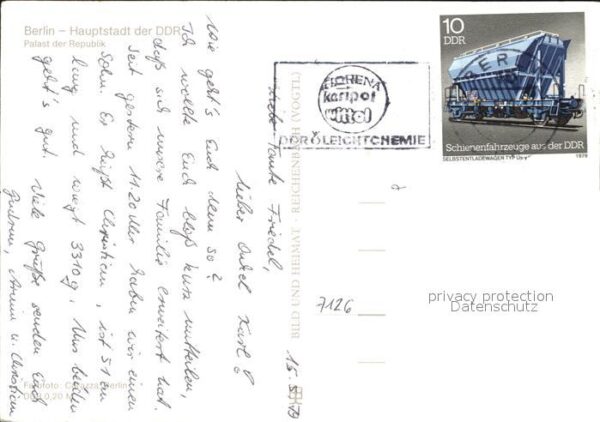 Berlin – Hauptstadt der DDR
Palast der Republik
15.5.79
Liebe Tante Friedel,
lieber Onkel Karl!
Wie geht's Euch denn so?
Ich wollte Euch bloß kurz mitteilen,
daß sich unsere Familie erweitert hat.
Seit gestern 11.20 Uhr haben wir einen
Sohn. Er heißt Christian, ist 51 cm
lang und wiegt 3310 g. Uns beiden
geht's gut. Viele Grüße senden Euch
Gudrun, Armin u. Christian
BILD UND HEIMAT · REICHENBACH (VOGTL)
FLORENA
karipol
wittol
DDR LEICHTCHEMIE
10
DDR
BERLIN
Schienenfahrzeuge aus der DDR
SELBSTENTLADEWAGEN TYP
1979
7126
privacy protection
Datenschutz
Berlin
0,20 M